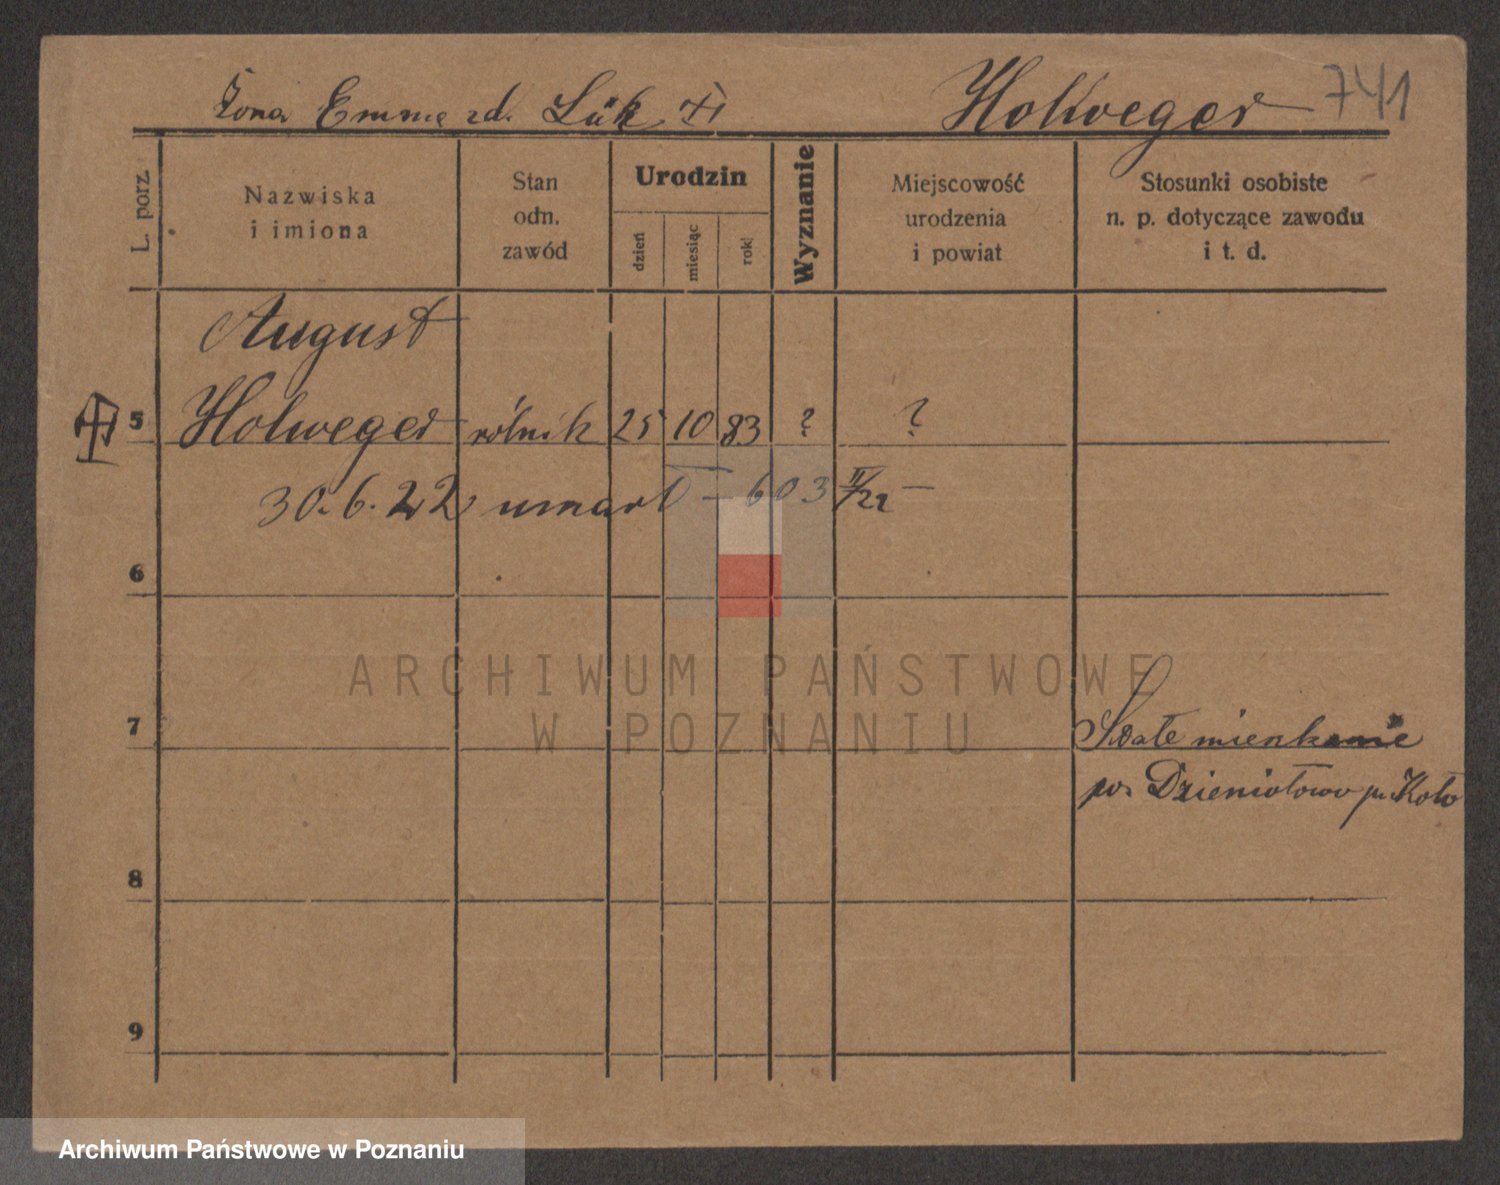 Żona Emmę zd. Lük
Holweger 741
L. porz.
Nazwiska
i imiona
Stan
odn.
zawód
Urodzin
dzień
miesiąc
rok
Wyznanie
Miejscowość
urodzenia
i powiat
Stosunki osobiste
n. p. dotyczące zawodu
i t. d.
August
5 Holweger rólnik 25 10 83 ? ?
30.6.22 umarł – 603 II/22 –
6
ARCHIWUM PAŃSTWOWE
W POZNANIU
7 Stałe mienkanie
pow. Dzieniotowo p. Koło
8
9
Archiwum Państwowe w Poznaniu